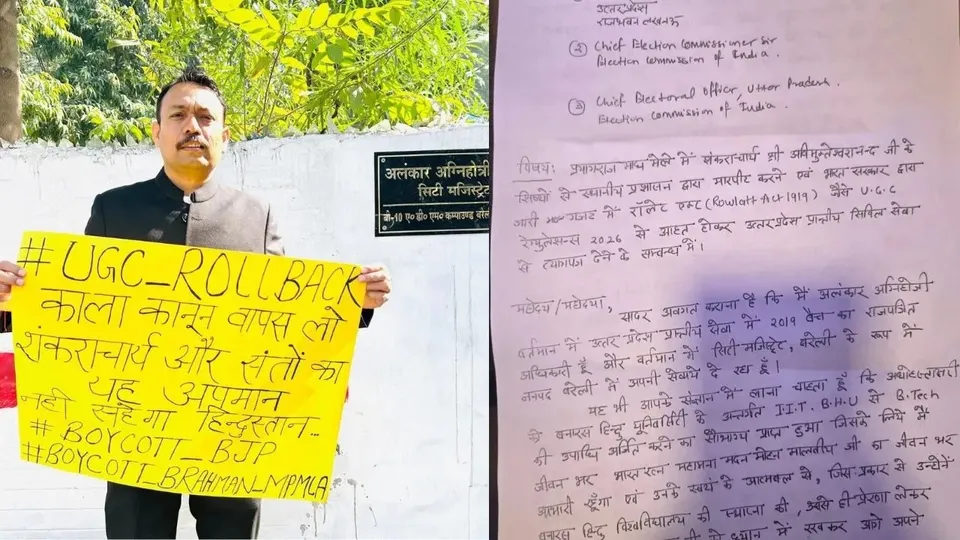 अलंकार अग्निहोत्री
सिटी मजिस्ट्रेट
बी-10 ए०डी०एम० कम्पाउण्ड बरेली
#UGC_ROLLBACK
काला कानून वापस लो
शंकराचार्य और संतों का
यह अपमान
नहीं सहेगा हिन्दुस्तान...
#BOYCOTT_BJP
#BOYCOTT_BRAHMAN_MPMLA
उत्तर प्रदेश
राजभवन लखनऊ
② Chief Election Commissioner Sir
Election Commission of India.
③ Chief Electoral Officer, Uttar Pradesh.
Election Commission of India.
विषय: प्रयागराज माघ मेले में शंकराचार्य श्री अविमुक्तेश्वरानन्द जी के
शिष्यों से स्थानीय प्रशासन द्वारा मारपीट करने एवं भारत सरकार द्वारा
जारी गजट में रॉलेट एक्ट (Rowlatt Act 1919) जैसे U.G.C
रेग्युलेसन्स 2026 से आहत होकर उत्तर प्रदेश प्रान्तीय सिविल सेवा
से त्यागपत्र देने के सम्बन्ध में।
महोदय/महोदया,
सादर अवगत कराना है कि मैं अलंकार अग्निहोत्री
वर्तमान में उत्तर प्रदेश प्रान्तीय सेवा में 2019 बैच का राजपत्रित
अधिकारी हूँ और वर्तमान में सिटी मजिस्ट्रेट, बरेली के रूप में
जनपद बरेली में अपनी सेवायें दे रहा हूँ।
यह भी आपके संज्ञान में लाना चाहता हूँ कि
को बनारस हिन्दू यूनिवर्सिटी के अन्तर्गत I.I.T. B.H.U से B.Tech
की उपाधि अर्जित करने का सौभाग्य प्राप्त हुआ जिसके लिये मैं
जीवन भर भारत रत्न महामना मदन मोहन मालवीय जी का जीवन भर
आभारी रहूँगा एवं उनके स्वयं के आत्मबल से, जिस प्रकार से उन्होंने
बनारस हिन्दू विश्वविद्यालय की स्थापना की, उससे ही प्रेरणा लेकर
ध्यान में रखकर आगे अपने